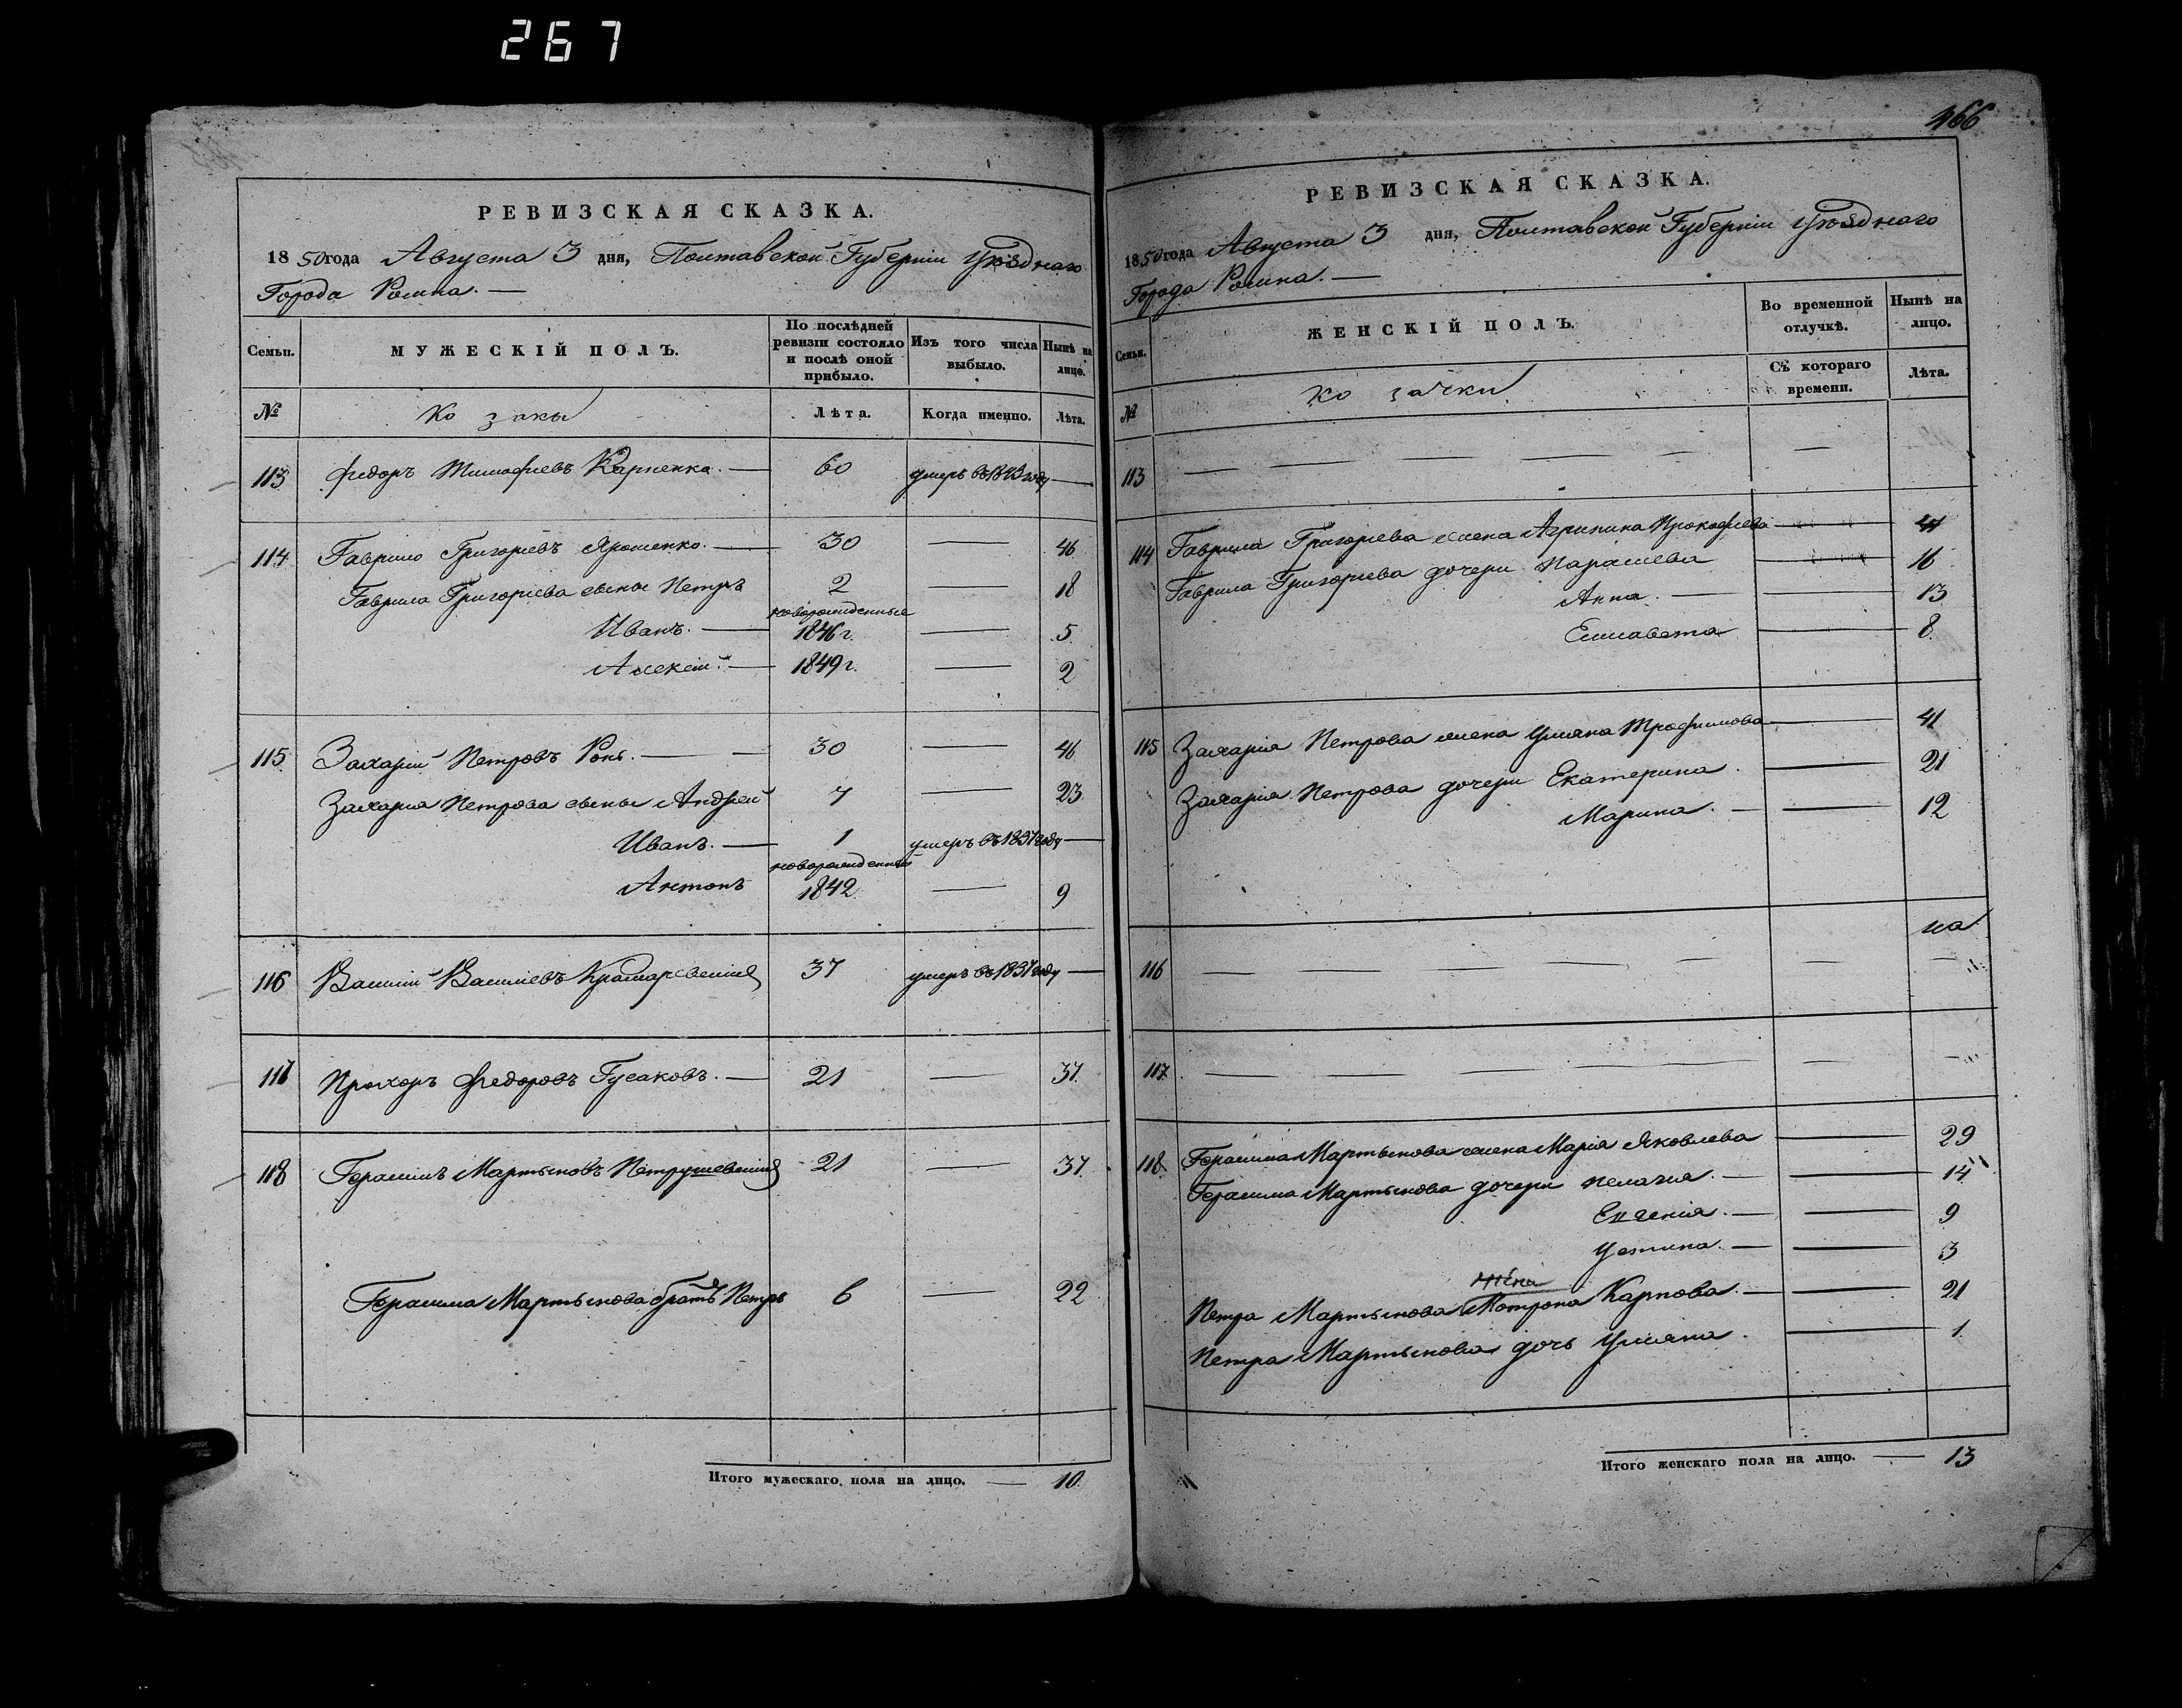 267
РЕВИЗСКАЯ СКАЗКА.
1850 года Августа 3 дня, Полтавской Губерніи Уѣзднаго
Города Ромна. —
Семьи. МУЖЕСКІЙ ПОЛЪ. По послѣдней ревизіи состояло и послѣ оной прибыло. Изъ того числа выбыло. Нынѣ на лицо.
№ Козаки Лѣта. Когда именно. Лѣта.
113 Федоръ Тимофіевъ Карпенко. — 60 умеръ въ 1843 году —
114 Гаврило Григоріевъ Ярошенко. — 30 — 46
Гаврила Григоріева сыны Петръ 2 — 18
новорожденные
Иванъ. — 1846 г. — 5
Алексій. — 1849 г. — 2
115 Захарій Петровъ Ронь. — 30 — 46
Захарія Петрова сыны Андрей 7 — 23
Иванъ. — 1 умеръ въ 1837 году —
новорожденный
Антонъ 1842 — 9
116 Василій Василіевъ 37 умеръ въ 1837 году —
117 Прохоръ Федоровъ Гусаковъ. — 21 — 37
118 Герасимъ Мартыновъ 21 — 37
Герасима Мартынова братъ Петръ 6 — 22
Итого мужескаго пола на лицо. — 10.
166
РЕВИЗСКАЯ СКАЗКА.
1850 года Августа 3 дня, Полтавской Губерніи Уѣзднаго
Города Ромна. —
Семьи. ЖЕНСКІЙ ПОЛЪ. Во временной отлучкѣ. Нынѣ на лицо.
№ Козачки Съ котораго времени. Лѣта.
113 — — — — — — — —
114 Гаврила Григоріева жена Агрипина Прокофіева — 41
Гаврила Григоріева дочери Параскева — 16
Анна. — — 13
Елисавета — 8
115 Захарія Петрова жена Уліяна Трофимова — 41
Захарія Петрова дочери Екатерина. — 21
Марина. — — 12
на
116 — — — — — — — — —
117 — — — — — — — — —
118 Герасима Мартынова жена Марія Яковлева — 29
Герасима Мартынова дочери Пелагія. — — 14
Евгенія. — — 9
Устина. — — 3
жена
Петра Мартынова Мотрона Карпова. — — 21
Петра Мартынова дочь Уліяна. — 1
Итого женскаго пола на лицо. — 13